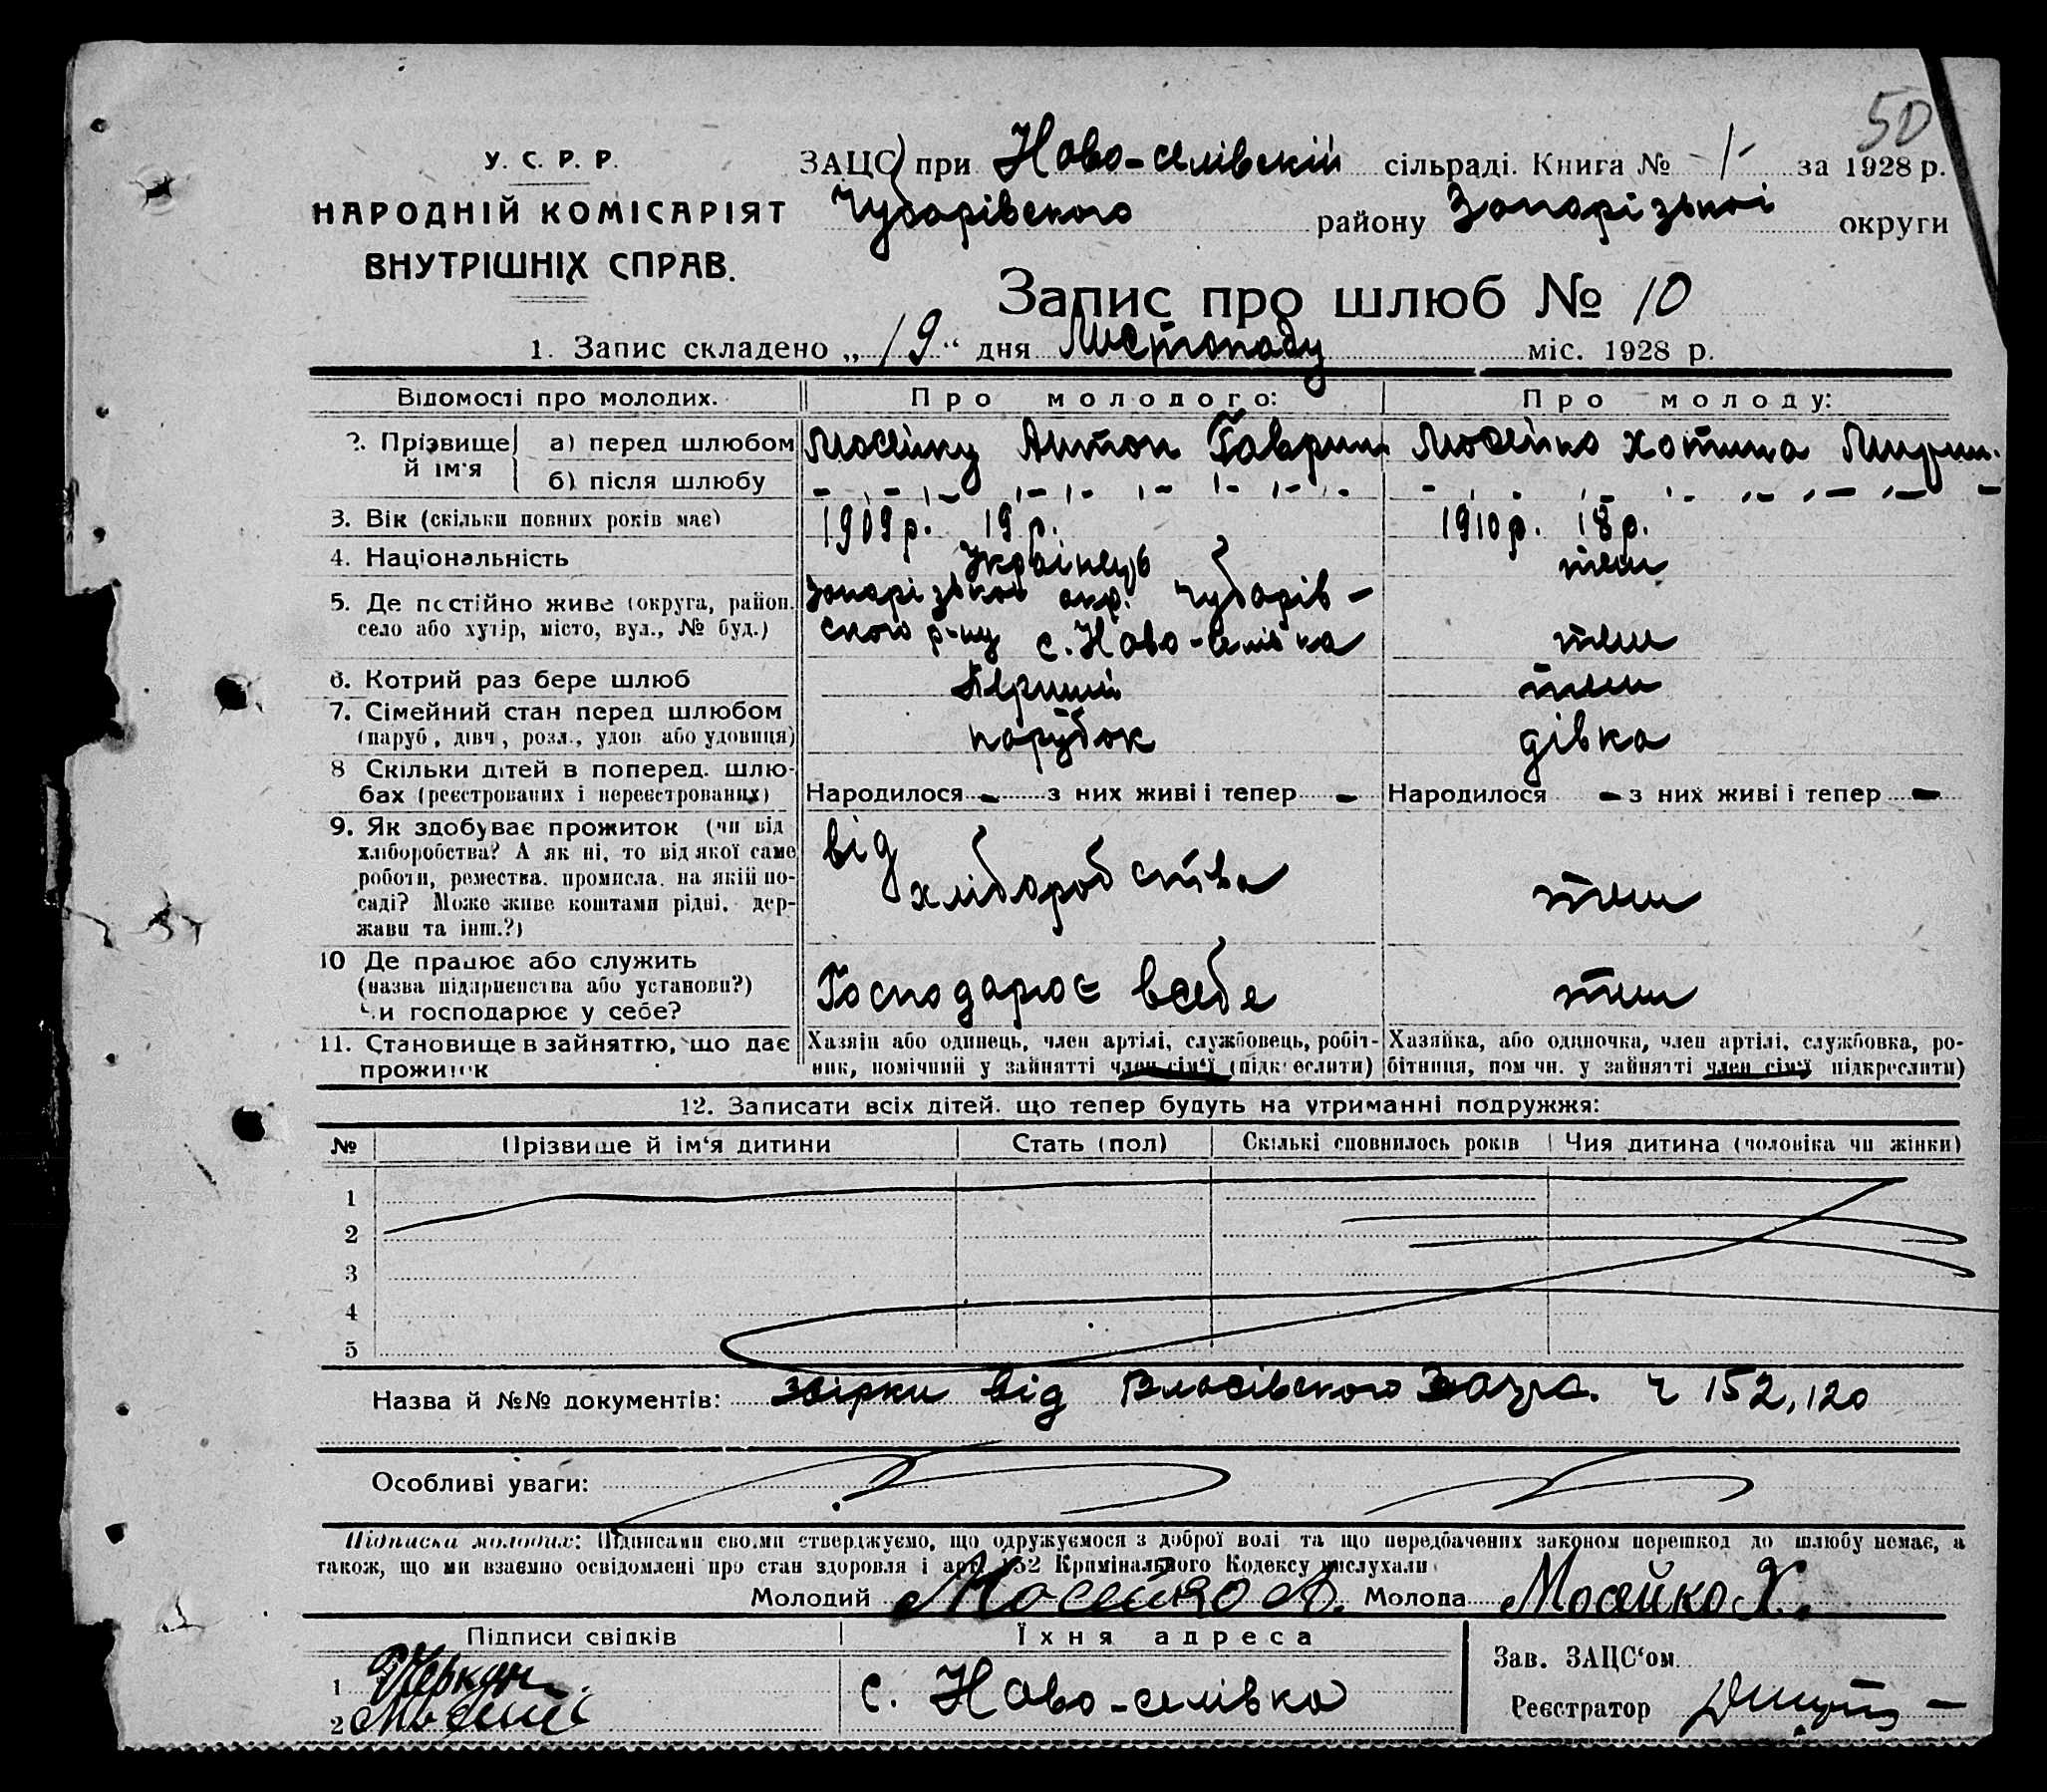 50
У. С. Р. Р.
НАРОДНІЙ КОМІСАРІЯТ
ВНУТРІШНІХ СПРАВ.
ЗАЦС при Ново-селівскій сільраді. Книга № 1 за 1928 р.
Чубарівского району Запорізької округи
Запис про шлюб № 10
1. Запис складено „19“ дня Листопаду міс. 1928 р.
Відомості про молодих. Про молодого: Про молоду:
2. Прізвище й ім'я а) перед шлюбом Мосейко Антон Гаврил. Мосейко Хотина
б) після шлюбу
3. Вік (скільки повних років має) 1909 р. 19 р. 1910 р. 18 р.
4. Національність Українець теж
5. Де постійно живе (округа, район, Запорізької окр. Чубарів-
село або хутір, місто, вул., № буд.) ского р-ну с. Ново-селівка теж
6. Котрий раз бере шлюб Перший теж
7. Сімейний стан перед шлюбом
(паруб., дівч., розл., удов. або удовиця) парубок дівка
8 Скільки дітей в поперед. шлю-
бах (реєстрованих і нереєстрованих) Народилося - з них живі і тепер - Народилося - з них живі і тепер -
9. Як здобуває прожиток (чи від
хліборобства? А як ні, то від якої саме
роботи, ремества, промисла, на якій по-
саді? Може живе коштами рідні, дер-
жави та інш.?)
від хліборобства теж
10 Де працює або служить
(назва підприємства або установи?)
Чи господарює у себе?
Господарює всебе теж
11. Становище в зайняттю, що дає
прожиток
Хазяїн або одинець, член артілі, службовець, робіт-
ник, помічний у зайнятті член сім'ї (підкреслити)
Хазяйка, або одиночка, член артілі, службовка, ро-
бітниця, пом чн. у зайнятті член сім'ї підкреслити)
12. Записати всіх дітей, що тепер будуть на утриманні подружжя:
№ Прізвище й ім'я дитини Стать (пол) Скількі сповнилось років Чия дитина (чоловіка чи жінки)
1
2
3
4
5
Назва й №№ документів: звірки від Власівского Загса. ч 152, 120
Особливі уваги:
Підписки молодих: Підписами своїми стверджуємо, що одружуємося з доброї волі та що передбачених законом перешкод до шлюбу немає, а
також, що ми взаємно освідомлені про стан здоровля і арт. 152 Кримінального Кодексу вислухали
Молодий Мосейко А. Молода Мосейко Х.
Підписи свідків Їхня адреса
1
2
с. Ново-селівка
Зав. ЗАЦС'ом
Реєстратор